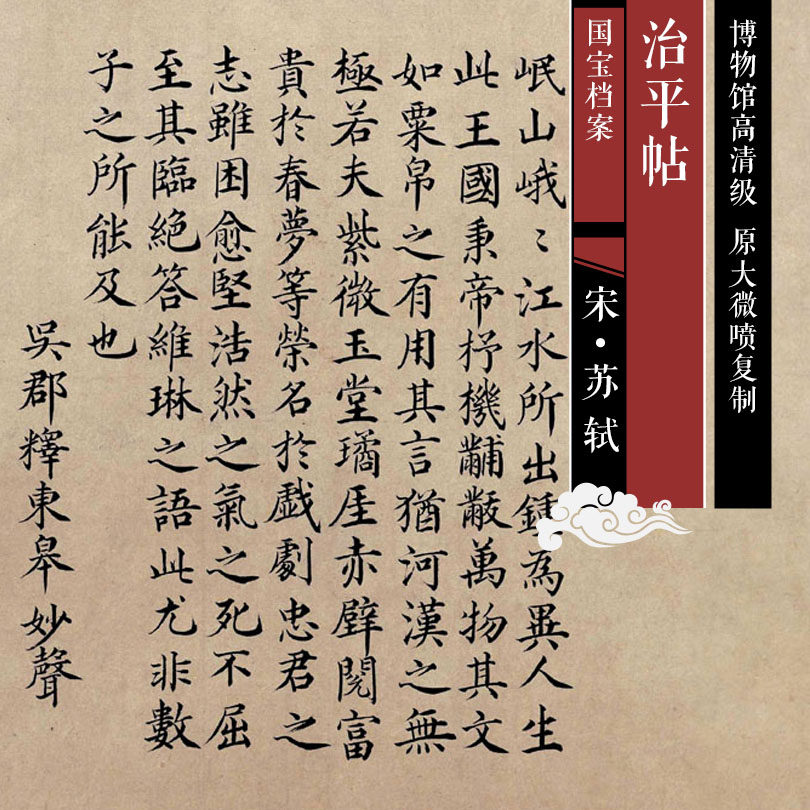 博物馆高清级 原大微喷复制
治平帖
国宝档案
宋·苏轼
岷山峨〻江水所出鍾為異人生
此王國秉帝杼機黼黻萬物其文
如粟帛之有用其言猶河漢之無
極若夫紫微玉堂璚厓赤壁閱富
貴於春夢等榮名於戲劇忠君之
志雖困愈堅浩然之氣之死不屈
至其臨絶答維琳之語此尤非數
子之所能及也
吳郡釋東皋妙聲